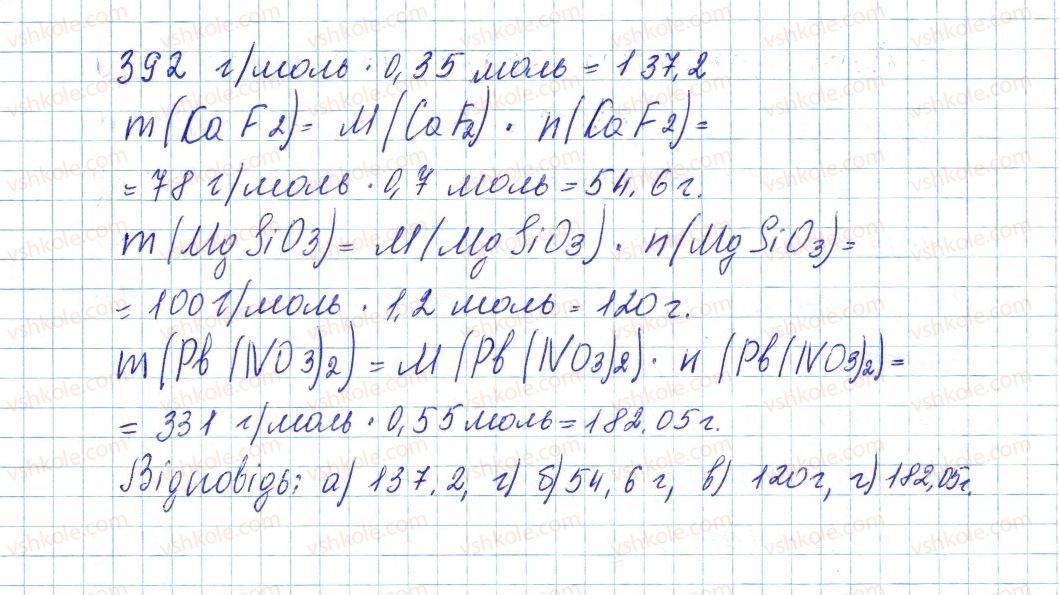 392 г/моль · 0,35 моль = 137,2
m(CaF2)= M(CaF2) · n(CaF2)=
= 78 г/моль · 0,7 моль = 54.6 г.
m(MgSiO3)= M(MgSiO3) · n(MgSiO3)=
= 100 г/моль · 1,2 моль = 120 г.
m(Pb(NO3)2) = M(Pb(NO3)2) · n(Pb(NO3)2)=
= 331 г/моль · 0,55 моль = 182.05 г.
Відповідь: а) 137.2, г) б) 54,6 г, в) 120 г, г) 182,05 г.